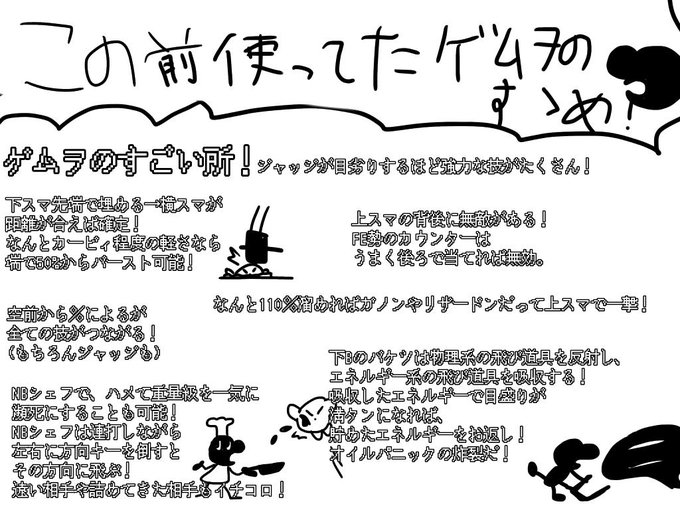 この前使ってたゲムヲの
すゝめ!
ゲムヲのすごい所!
ジャッジが目劣りするほど強力な技がたくさん!
下スマ先端で埋める→横スマが
距離が合えば確定!
なんとカービィ程度の軽さなら
端で50%からバースト可能!
上スマの背後に無敵がある!
FE勢のカウンターは
うまく後ろで当てれば無効。
なんと110%溜めればガノンやリザードンだって上スマで一撃!
空前から%によるが
全ての技がつながる!
(もちろんジャッジも)
下Bのバケツは物理系の飛び道具を反射し、
エネルギー系の飛び道具を吸収する!
吸収したエネルギーで目盛りが
満タンになれば、
貯めたエネルギーをお返し!
オイルパニックの炸裂だ!
NBシェフで、ハメて重量級を一気に
瀕死にすることも可能!
NBシェフは連打しながら
左右に方向キーを倒すと
その方向に飛ぶ!
速い相手や詰めてきた相手もイチコロ!